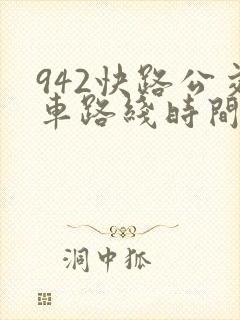 942快路公交
車路綫時間
洞中狐